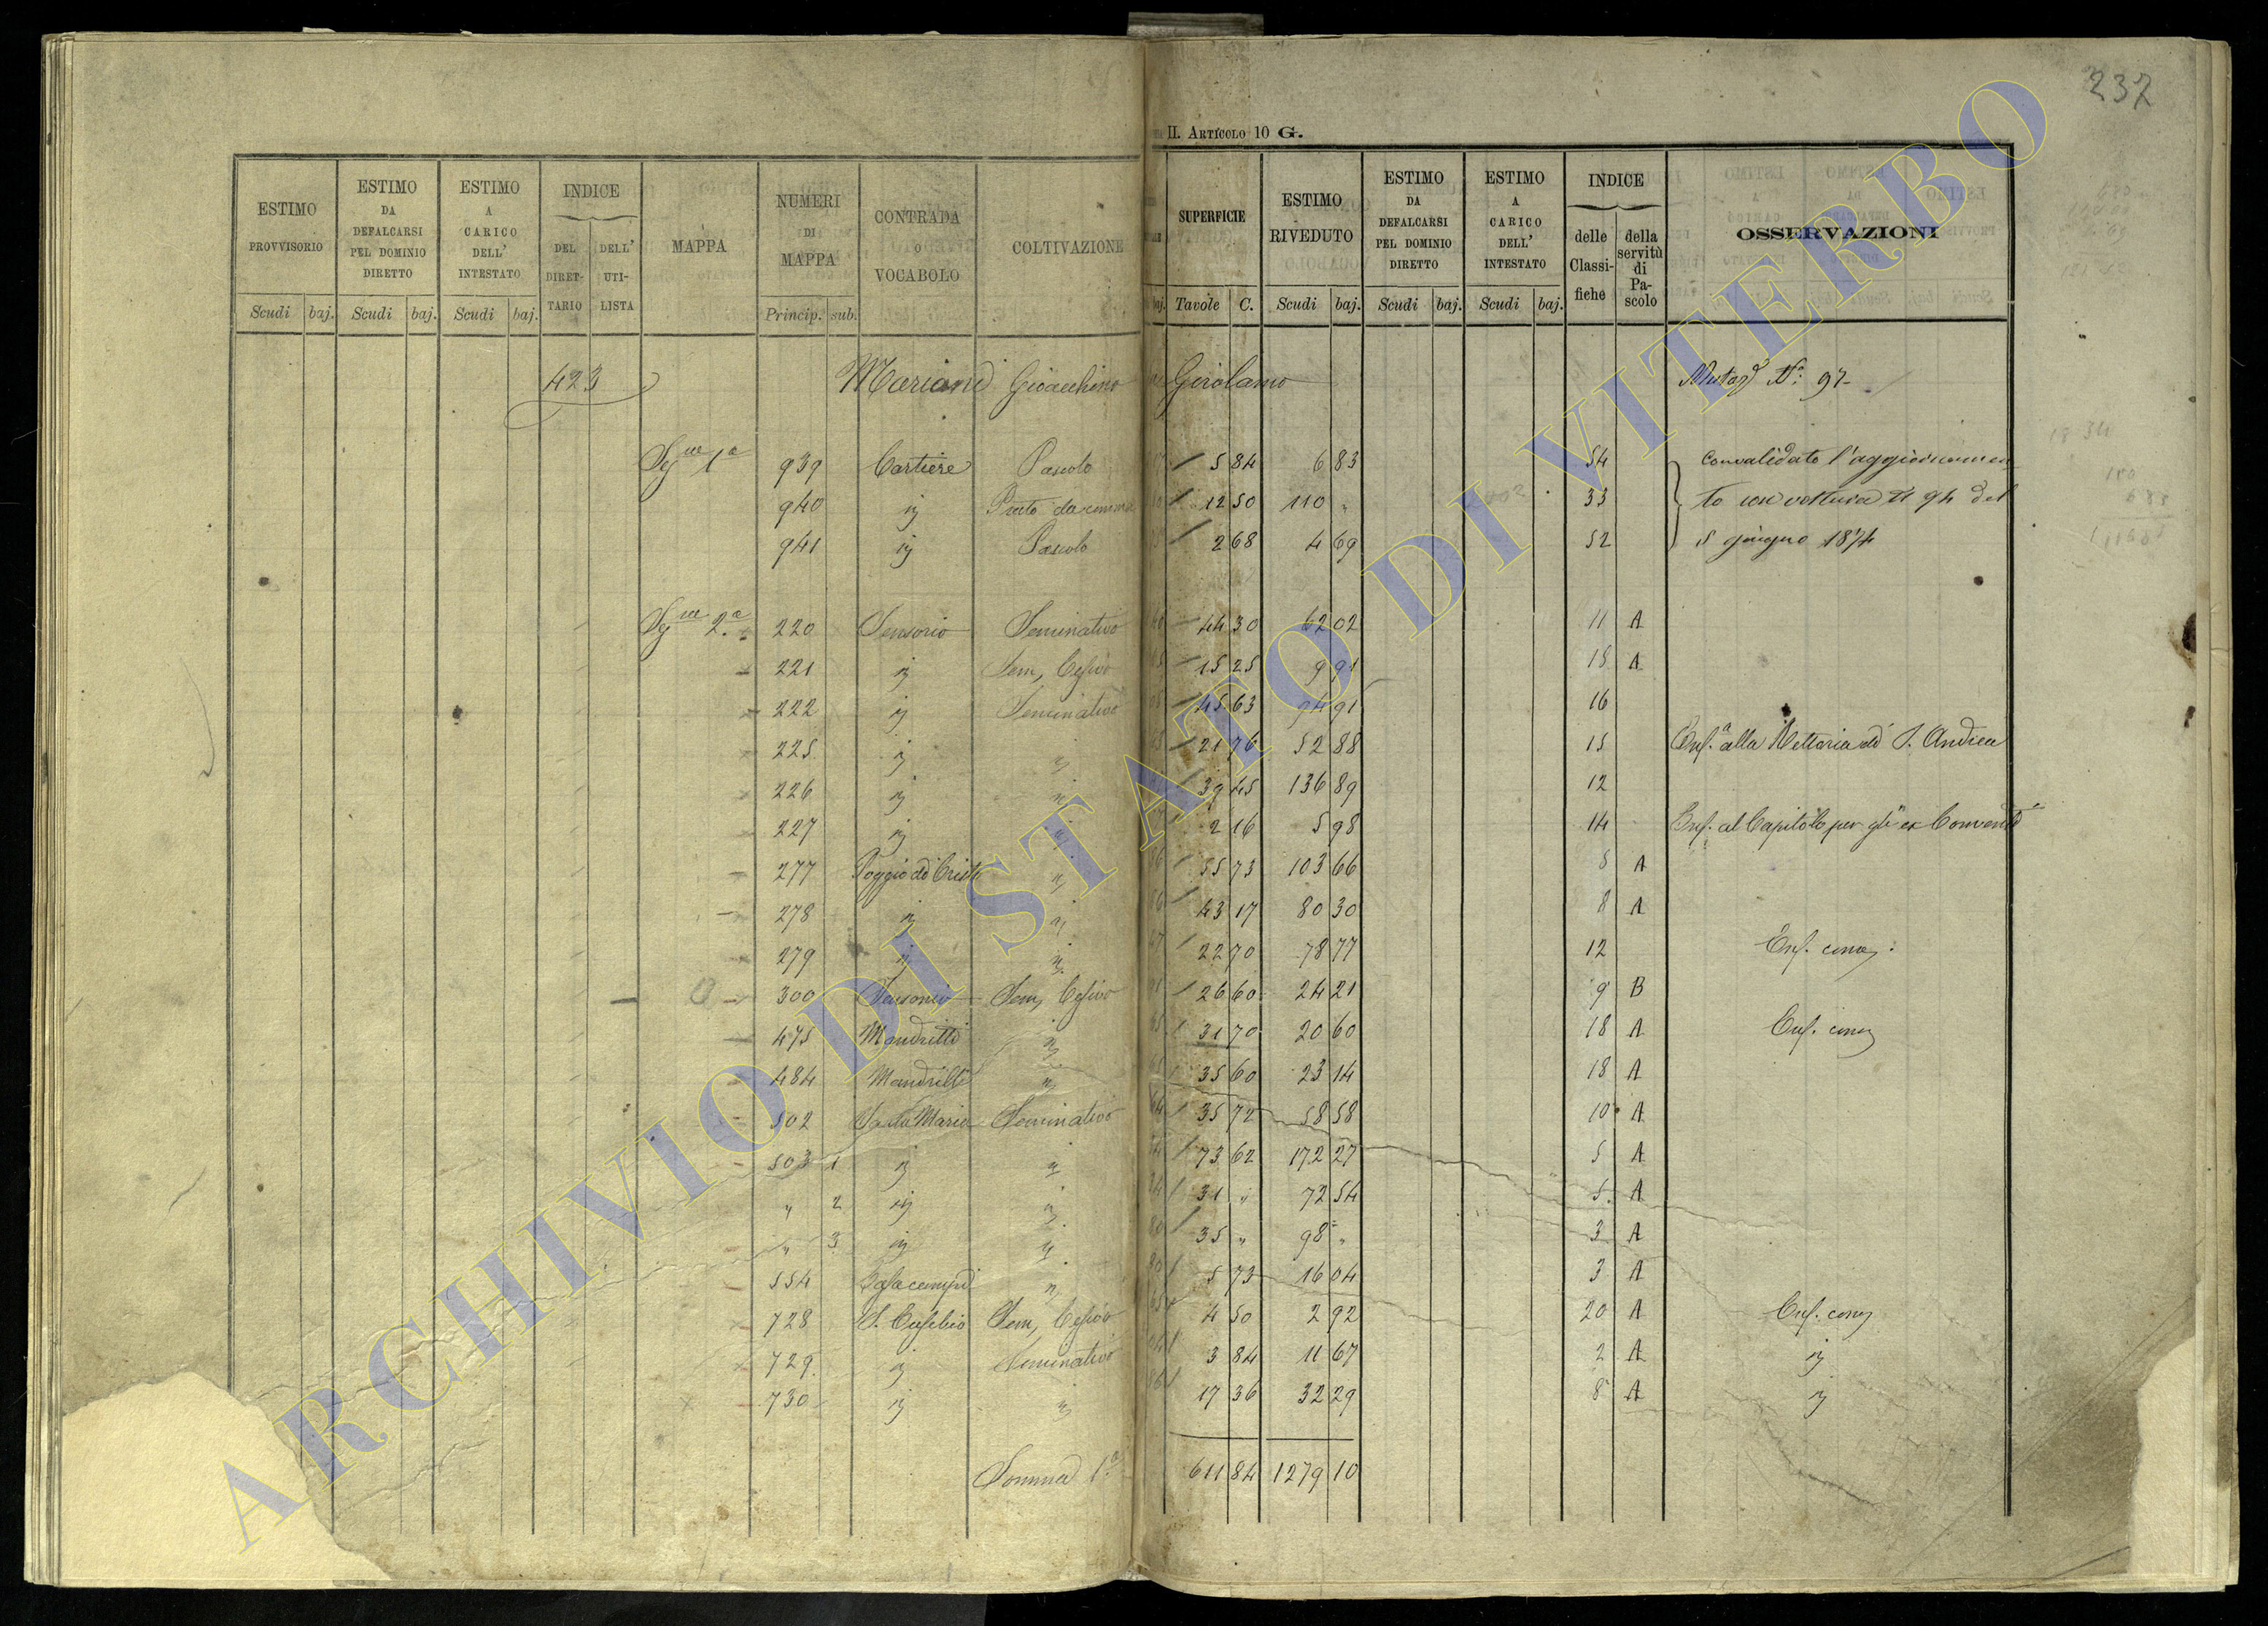 232
II. ARTICOLO 10 G.
ESTIMO PROVVISORIO Scudi baj. ESTIMO DA DEFALCARSI PEL DOMINIO DIRETTO Scudi baj. ESTIMO A CARICO DELL' INTESTATO Scudi baj. INDICE DEL DIRETTARIO DELL' UTILISTA MAPPA NUMERI DI MAPPA Princip. sub. CONTRADA O VOCABOLO COLTIVAZIONE
baj. SUPERFICIE Tavole C. ESTIMO RIVEDUTO Scudi baj. ESTIMO DA DEFALCARSI PEL DOMINIO DIRETTO Scudi baj. ESTIMO A CARICO DELL' INTESTATO Scudi baj. INDICE delle Classifiche della servitù di Pascolo OSSERVAZIONI
423 Mariani Gioacchino Girolamo N° 97
Sez ne 1a 939 Cartiere Pascolo 5 84 6 83 54 convalidato l'aggiornamen
940 id Prato 12 50 110 " 33 to con voltura N 94 del
941 id Pascolo 2 68 4 69 52 5 giugno 1874
Sez ne 2.a 220 Sensorio Seminativo 44 30 62 02 11 A
221 id Sem, Cesivo 15 25 9 91 18 A
222 id Seminativo 45 63 94 91 16
225 id id 21 76 52 88 15 Enf.a alla Rettoria di S. Andrea
226 id id 39 45 136 89 12
227 id id 2 16 5 98 14 Enf. al Capitolo per gli ex Conventi
277 Poggio di Cristo id 55 73 103 66 8 A
278 id id 43 17 80 30 8 A
279 id id 22 70 78 77 12 Enf. come
300 Sensorio Sem, Cesivo 26 60 24 21 9 B
475 Mandrilli id 31 70 20 60 18 A Enf. come
484 Mandrilli id 35 60 23 14 18 A
502 Maria Seminativo 35 72 58 58 10 A
503 1 id id 73 62 172 27 5 A
" 2 id id 31 " 72 54 5 A
" 3 id id 35 " 98 " 3 A
554 id 5 73 16 04 3 A
728 S. Eusebio Sem, Cesivo 4 50 2 92 20 A Enf. come
729 id Seminativo 3 84 11 67 2 A id
730 id id 17 36 32 29 8 A id
Somma 1.a 611 84 1279 10
ARCHIVIO DI STATO DI VITERBO